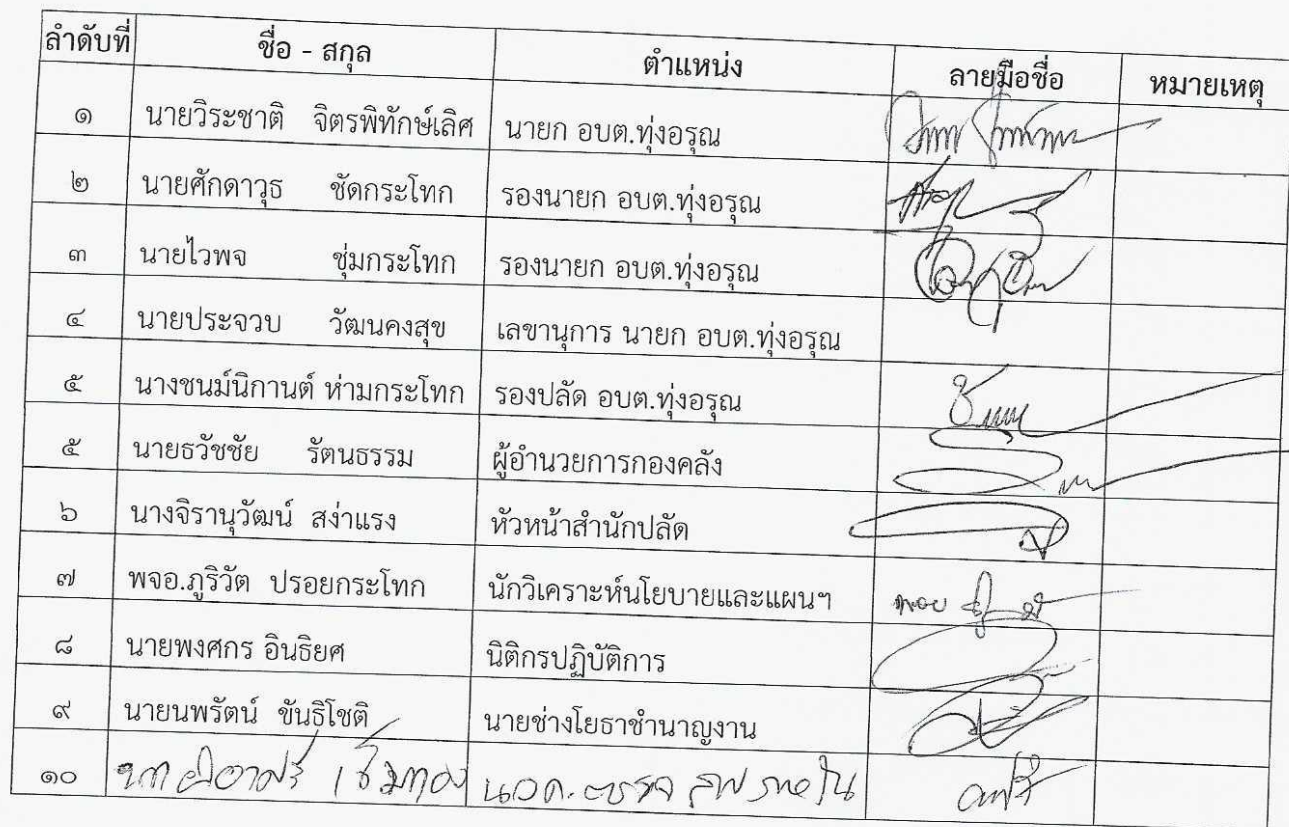 ลำดับที่ ชื่อ - สกุล ตำแหน่ง ลายมือชื่อ หมายเหตุ
๑ นายวิระชาติ จิตรพิทักษ์เลิศ นายก อบต.ทุ่งอรุณ
๒ นายศักดาวุธ ชัดกระโทก รองนายก อบต.ทุ่งอรุณ
๓ นายไวพจ ชุ่มกระโทก รองนายก อบต.ทุ่งอรุณ
๔ นายประจวบ วัฒนคงสุข เลขานุการ นายก อบต.ทุ่งอรุณ
๕ นางชนม์นิกานต์ ห่ามกระโทก รองปลัด อบต.ทุ่งอรุณ
๕ นายธวัชชัย รัตนธรรม ผู้อำนวยการกองคลัง
๖ นางจิรานุวัฒน์ สง่าแรง หัวหน้าสำนักปลัด
๗ พจอ.ภูริวัต ปรอยกระโทก นักวิเคราะห์นโยบายและแผนฯ
๘ นายพงศกร อินธิยศ นิติกรปฏิบัติการ
๙ นายนพรัตน์ ขันธิโชติ นายช่างโยธาชำนาญงาน
๑๐